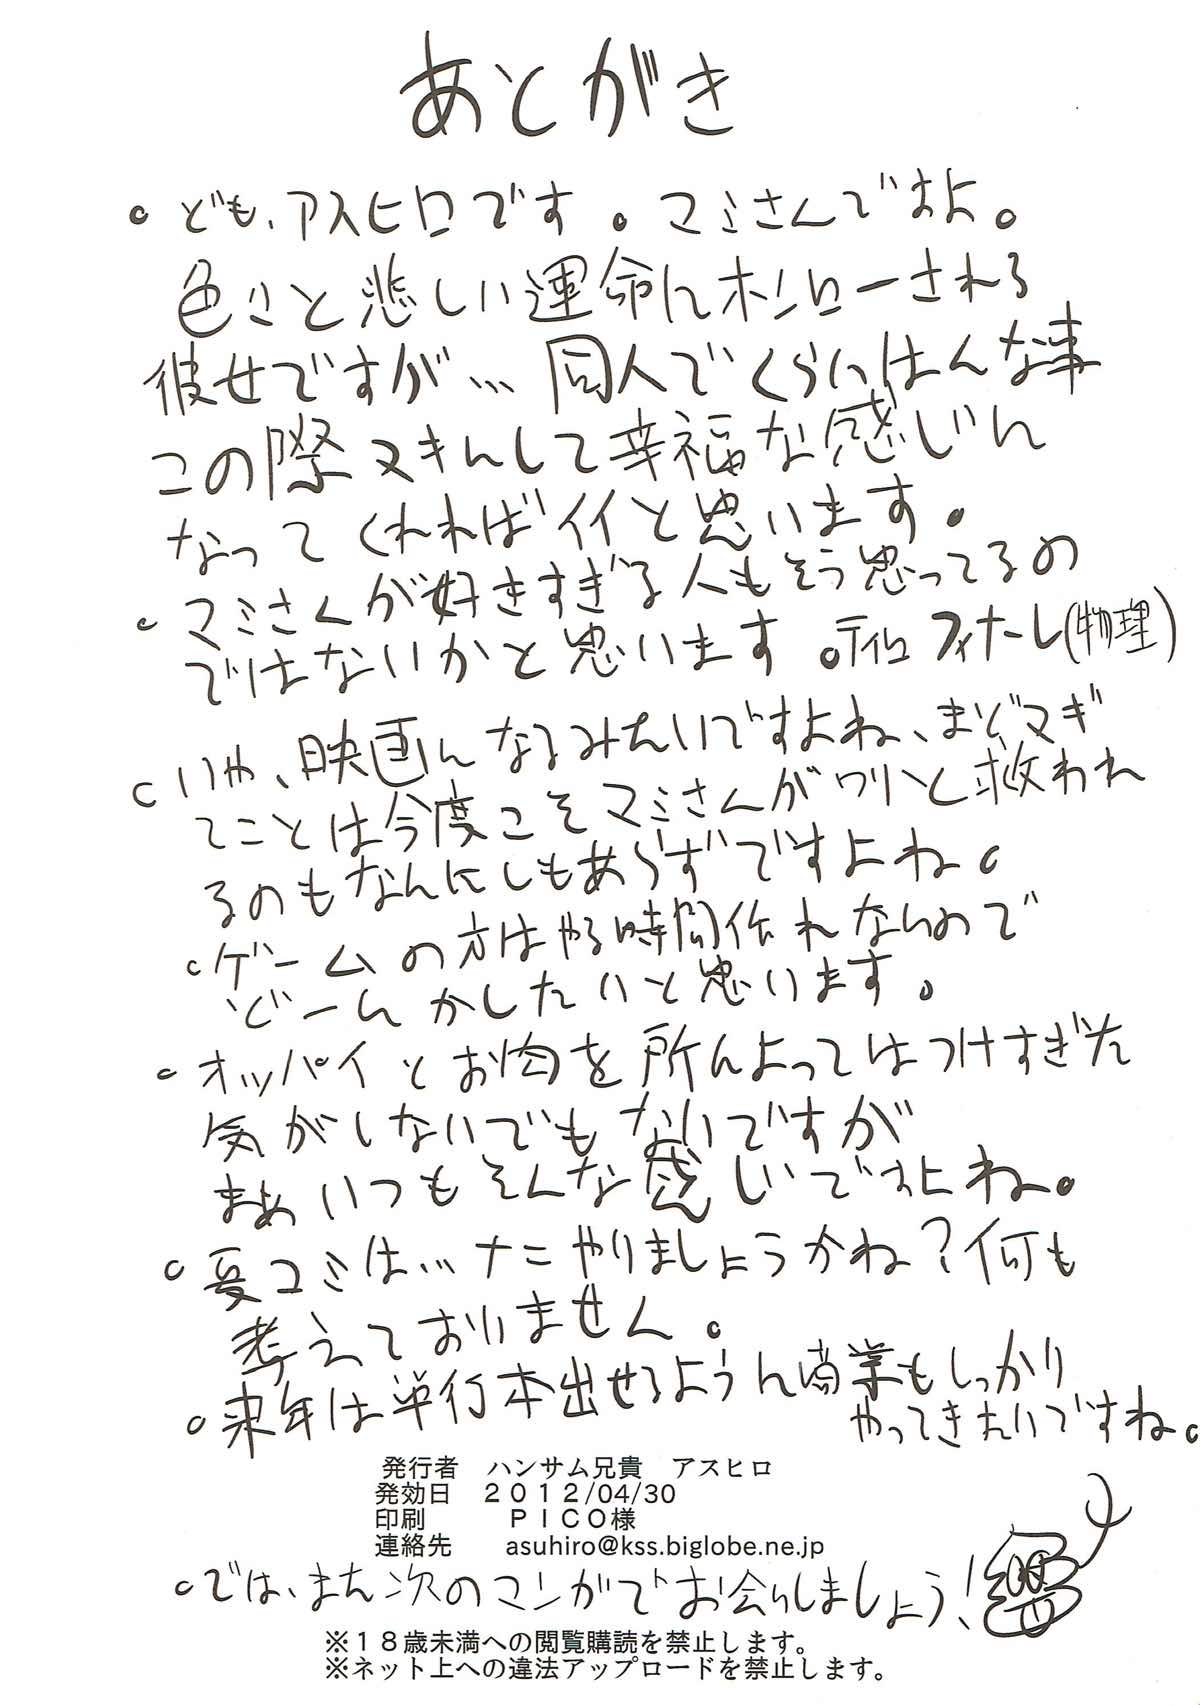 あとがき
。ども、アスヒロです。マミさんですよ。
色々と悲しい運命にホンローされる
彼女ですが… 同人でくらいはんな事
この際ヌキにして幸福な感じに
なってくれればイイと思います。
。マミさんが好きすぎる人もそう思ってるの
ではないかと思います。ティロ フィナーレ(物理)
。いや、映画になるみたいですよね、まどマギ
てことは今度こそマミさんがワリと救われ
るのもなんにしもあらずですよね。
。ゲームの方はやる時間作れないので
どーにかしたいと思います。
。オッパイとお肉を所によってはつけすぎた
気がしないでもないですが
まぁいつもそんな感じですよね。
。夏コミは… ナニやりましょうかね?何も
考えておりません。
。来年は単行本出せるように商業もしっかり
やってきたいですね。
発行者 ハンサム兄貴 アスヒロ
発効日 2012/04/30
印刷 PICO様
連絡先 asuhiro@kss.biglobe.ne.jp
。では、また次のマンガでお会いしましょう!
※18歳未満への閲覧購読を禁止します。
※ネット上への違法アップロードを禁止します。